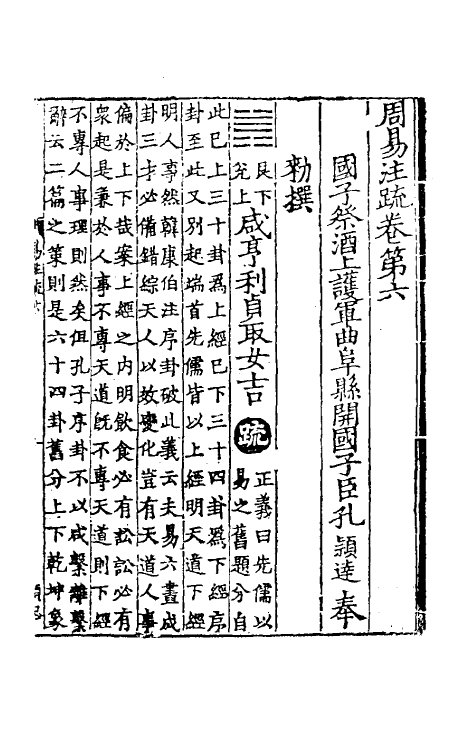 周易注疏卷第六
國子祭酒上護軍曲阜縣開國子臣孔 穎達 奉
勑撰
艮下
兌上
咸亨利貞取女吉
疏
正義曰先儒以
易之舊題分自
此已上三十卦爲上經已下三十四卦爲下經序
卦至此又別起端首先儒皆以上經明天道下經
明人事然韓康伯注序卦破此義云夫易六畫成
卦三才必備錯綜天人以效變化豈有天道人事
偏於上下哉案上經之内明飲食必有訟訟必有
衆起是兼於人事不專天道旣不專天道則下經
不專人事理則然矣但孔子序卦不以咸繫離繫
辭云二篇之策則是六十四卦舊分上下乾坤象